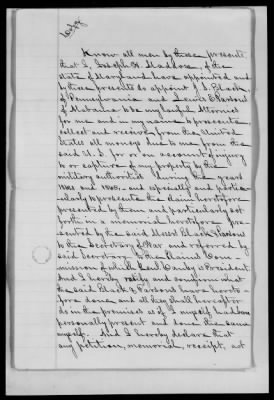 Know all men by these presents
that I, Joseph H. Maddox, of the
state of Maryland have appointed and
by these presents do appoint J. S. Black
of Pennsylvania and Lewis E. Parsons
of Alabama to be my lawful Attorneys
for me and in my name to prosecute
collect and receive from the United
States all moneys due to me from the
said U. S. for or on account of injury
to or capture of my property by the
military authorities during the years
and especially and partic-
ularly to prosecute the claim heretofore
presented by them and particularly set
forth in a memorial heretofore pre-
sented by the said Messrs Black & Parsons
to the Secretary of War and referred by
said Secretary to the Claims Com-
mission of which Genl. Canby is President
And I hereby ratify and confirm what
the said Black & Parsons have hereto-
fore done and all they shall hereafter
do in the premises as if I myself had been
personally present and done the same
myself. And I hereby declare that
any petition, memorial, receipt, act